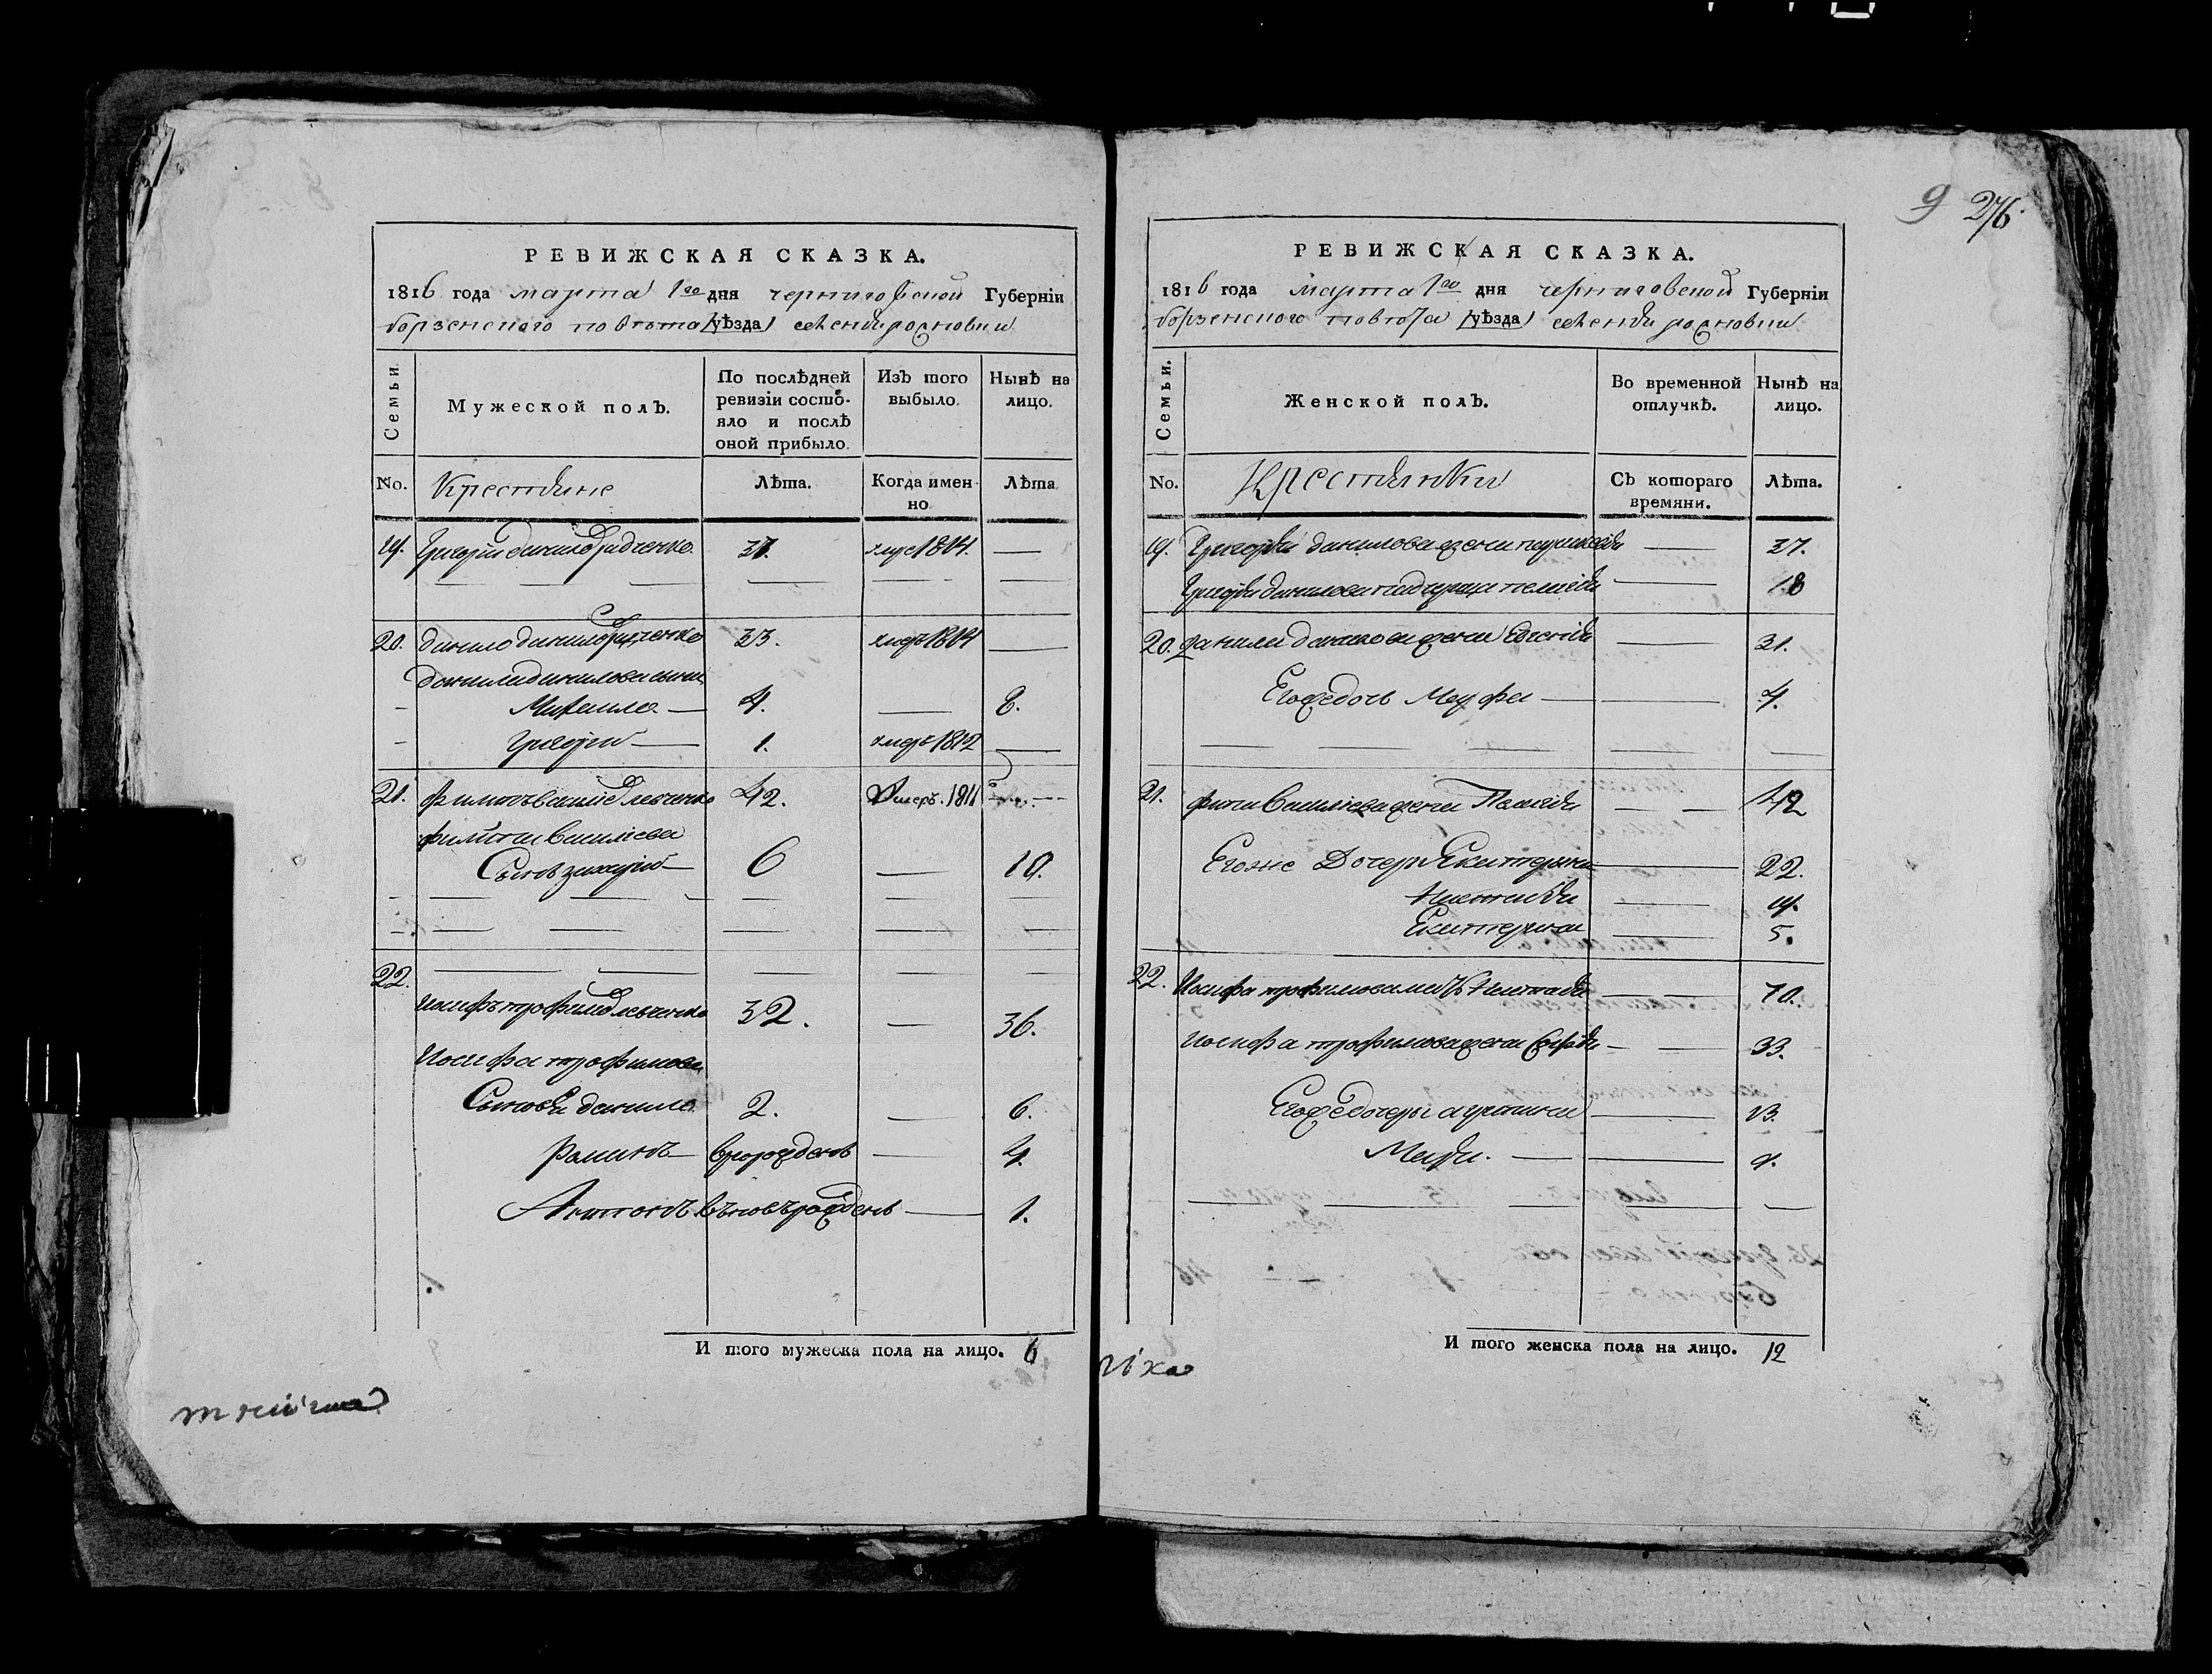 9 276.
РЕВИЖСКАЯ СКАЗКА.
1816 года марта 1го дня черниговской Губерніи
борзенского повѣта /уѣзда/
Семьи.
Мужеской полъ.
По послѣдней ревизіи состояло и послѣ оной прибыло.
Изъ того выбыло.
Нынѣ на лицо.
No.
Крестяне
Лѣта.
Когда именно
Лѣта
19. Григорій данилов 37. умре 1814. —
20. данило данилов 33. умеръ 1814 —
данила данилова сыни
Михаило — 4. — 8.
Григорий — 1. умеръ 1812 —
21. филипъ василіев левченко 42. Умеръ. 1811 —
филипа василіева
Сынъ захарій — 6 — 10.
22.
Иосифъ трофимов левченко 32. — 36.
Иосифа трофимова
Сыновя данило 2. — 6.
Романъ — вроржденъ — 4.
Антонъ вновърожденъ — 1.
И того мужеска пола на лицо. 6
РЕВИЖСКАЯ СКАЗКА.
1816 года Марта 1го дня черниговской Губерніи
борзенского повѣта /уѣзда/
Семьи.
Женской полъ.
Во временной отлучкѣ.
Нынѣ на лицо.
No.
Крестянки
Съ котораго времяни.
Лѣта.
19. Григорія данилова жена — 37.
Григорія данилова падчерица пелагія — 18
20. данила данилова жена Евгенія — 31.
Егожедочь Марфа — — 4.
21. филипа Василіева жена Пелагія — — 42
Егоже Дочери Екатерина — 22.
Настасія — 19.
Екатерина — 5.
22. Иосифа трофимова мать Настасія — 70.
Иосифа трофимова жена Софія — — 33.
Егожедочеры агрипина — 13.
Марія. — — 9.
И того женска пола на лицо. 12